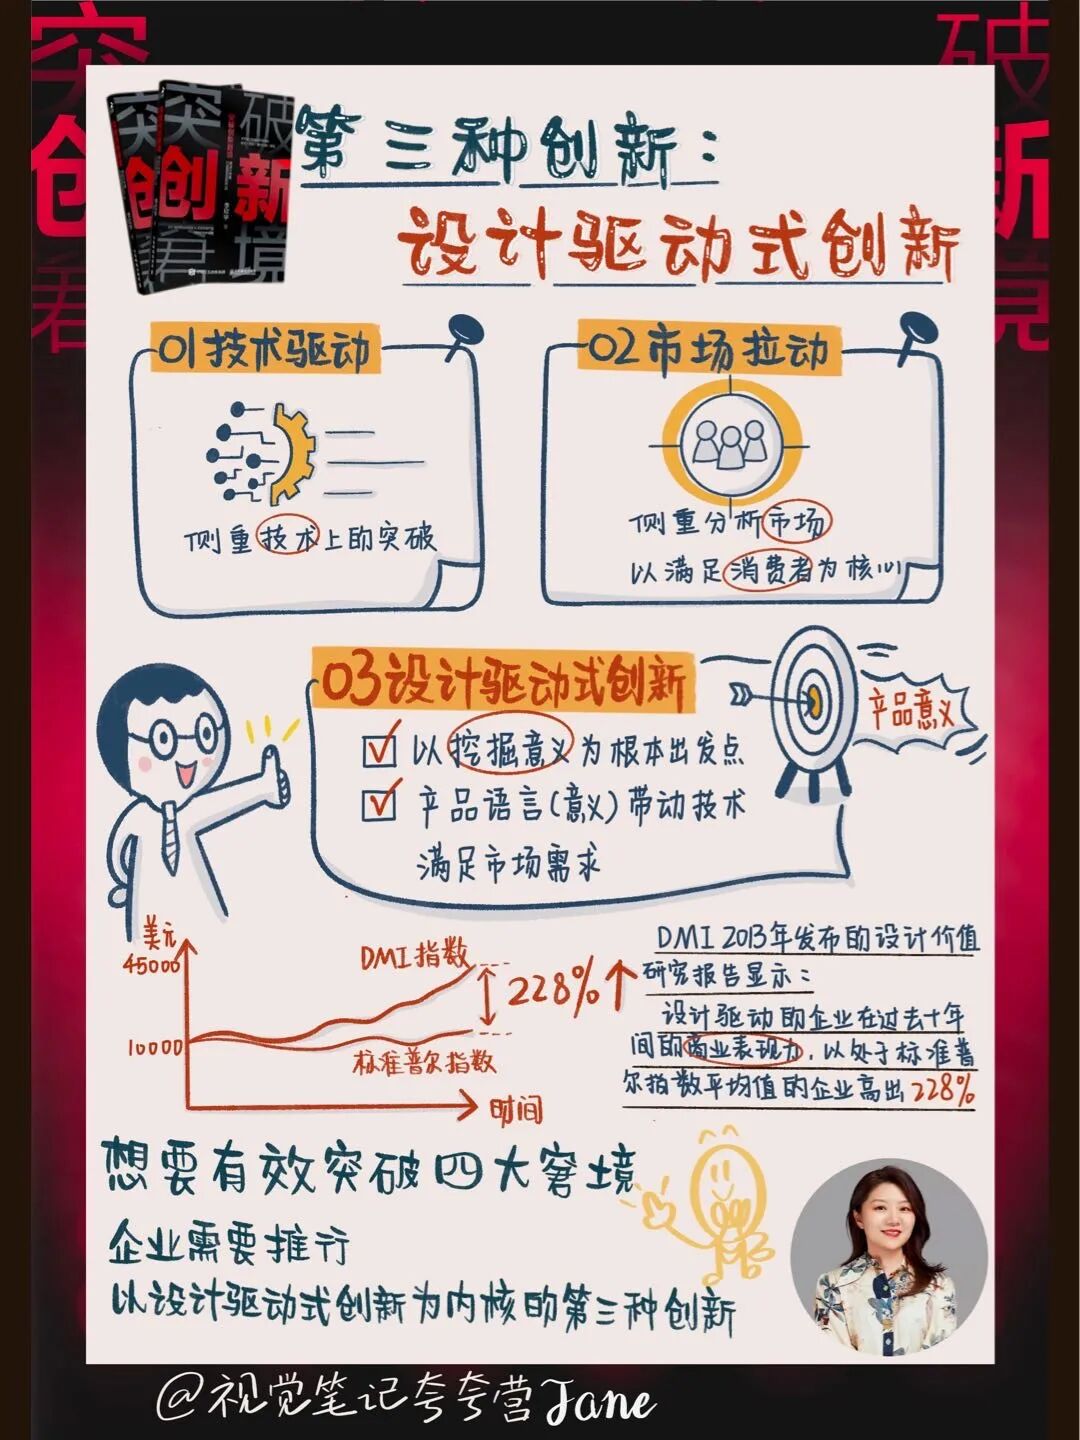 突 破
创 新
君 竟
突 破
创 新
窘 境
第三种创新：
设计驱动式创新
01技术驱动
侧重技术上的突破
02市场拉动
侧重分析市场
以满足消费者为核心
03设计驱动式创新
以挖掘意义为根本出发点
产品语言(意义)带动技术
满足市场需求
产品意义
美元
45000
10000
DMI指数
228%
标准普尔指数
时间
DMI 2013年发布的设计价值
研究报告显示：
设计驱动的企业在过去十年
间的商业表现力，以处于标准普
尔指数平均值的企业高出228%
想要有效突破四大窘境
企业需要推行
以设计驱动式创新为内核的第三种创新
@视觉笔记夸夸营Jane